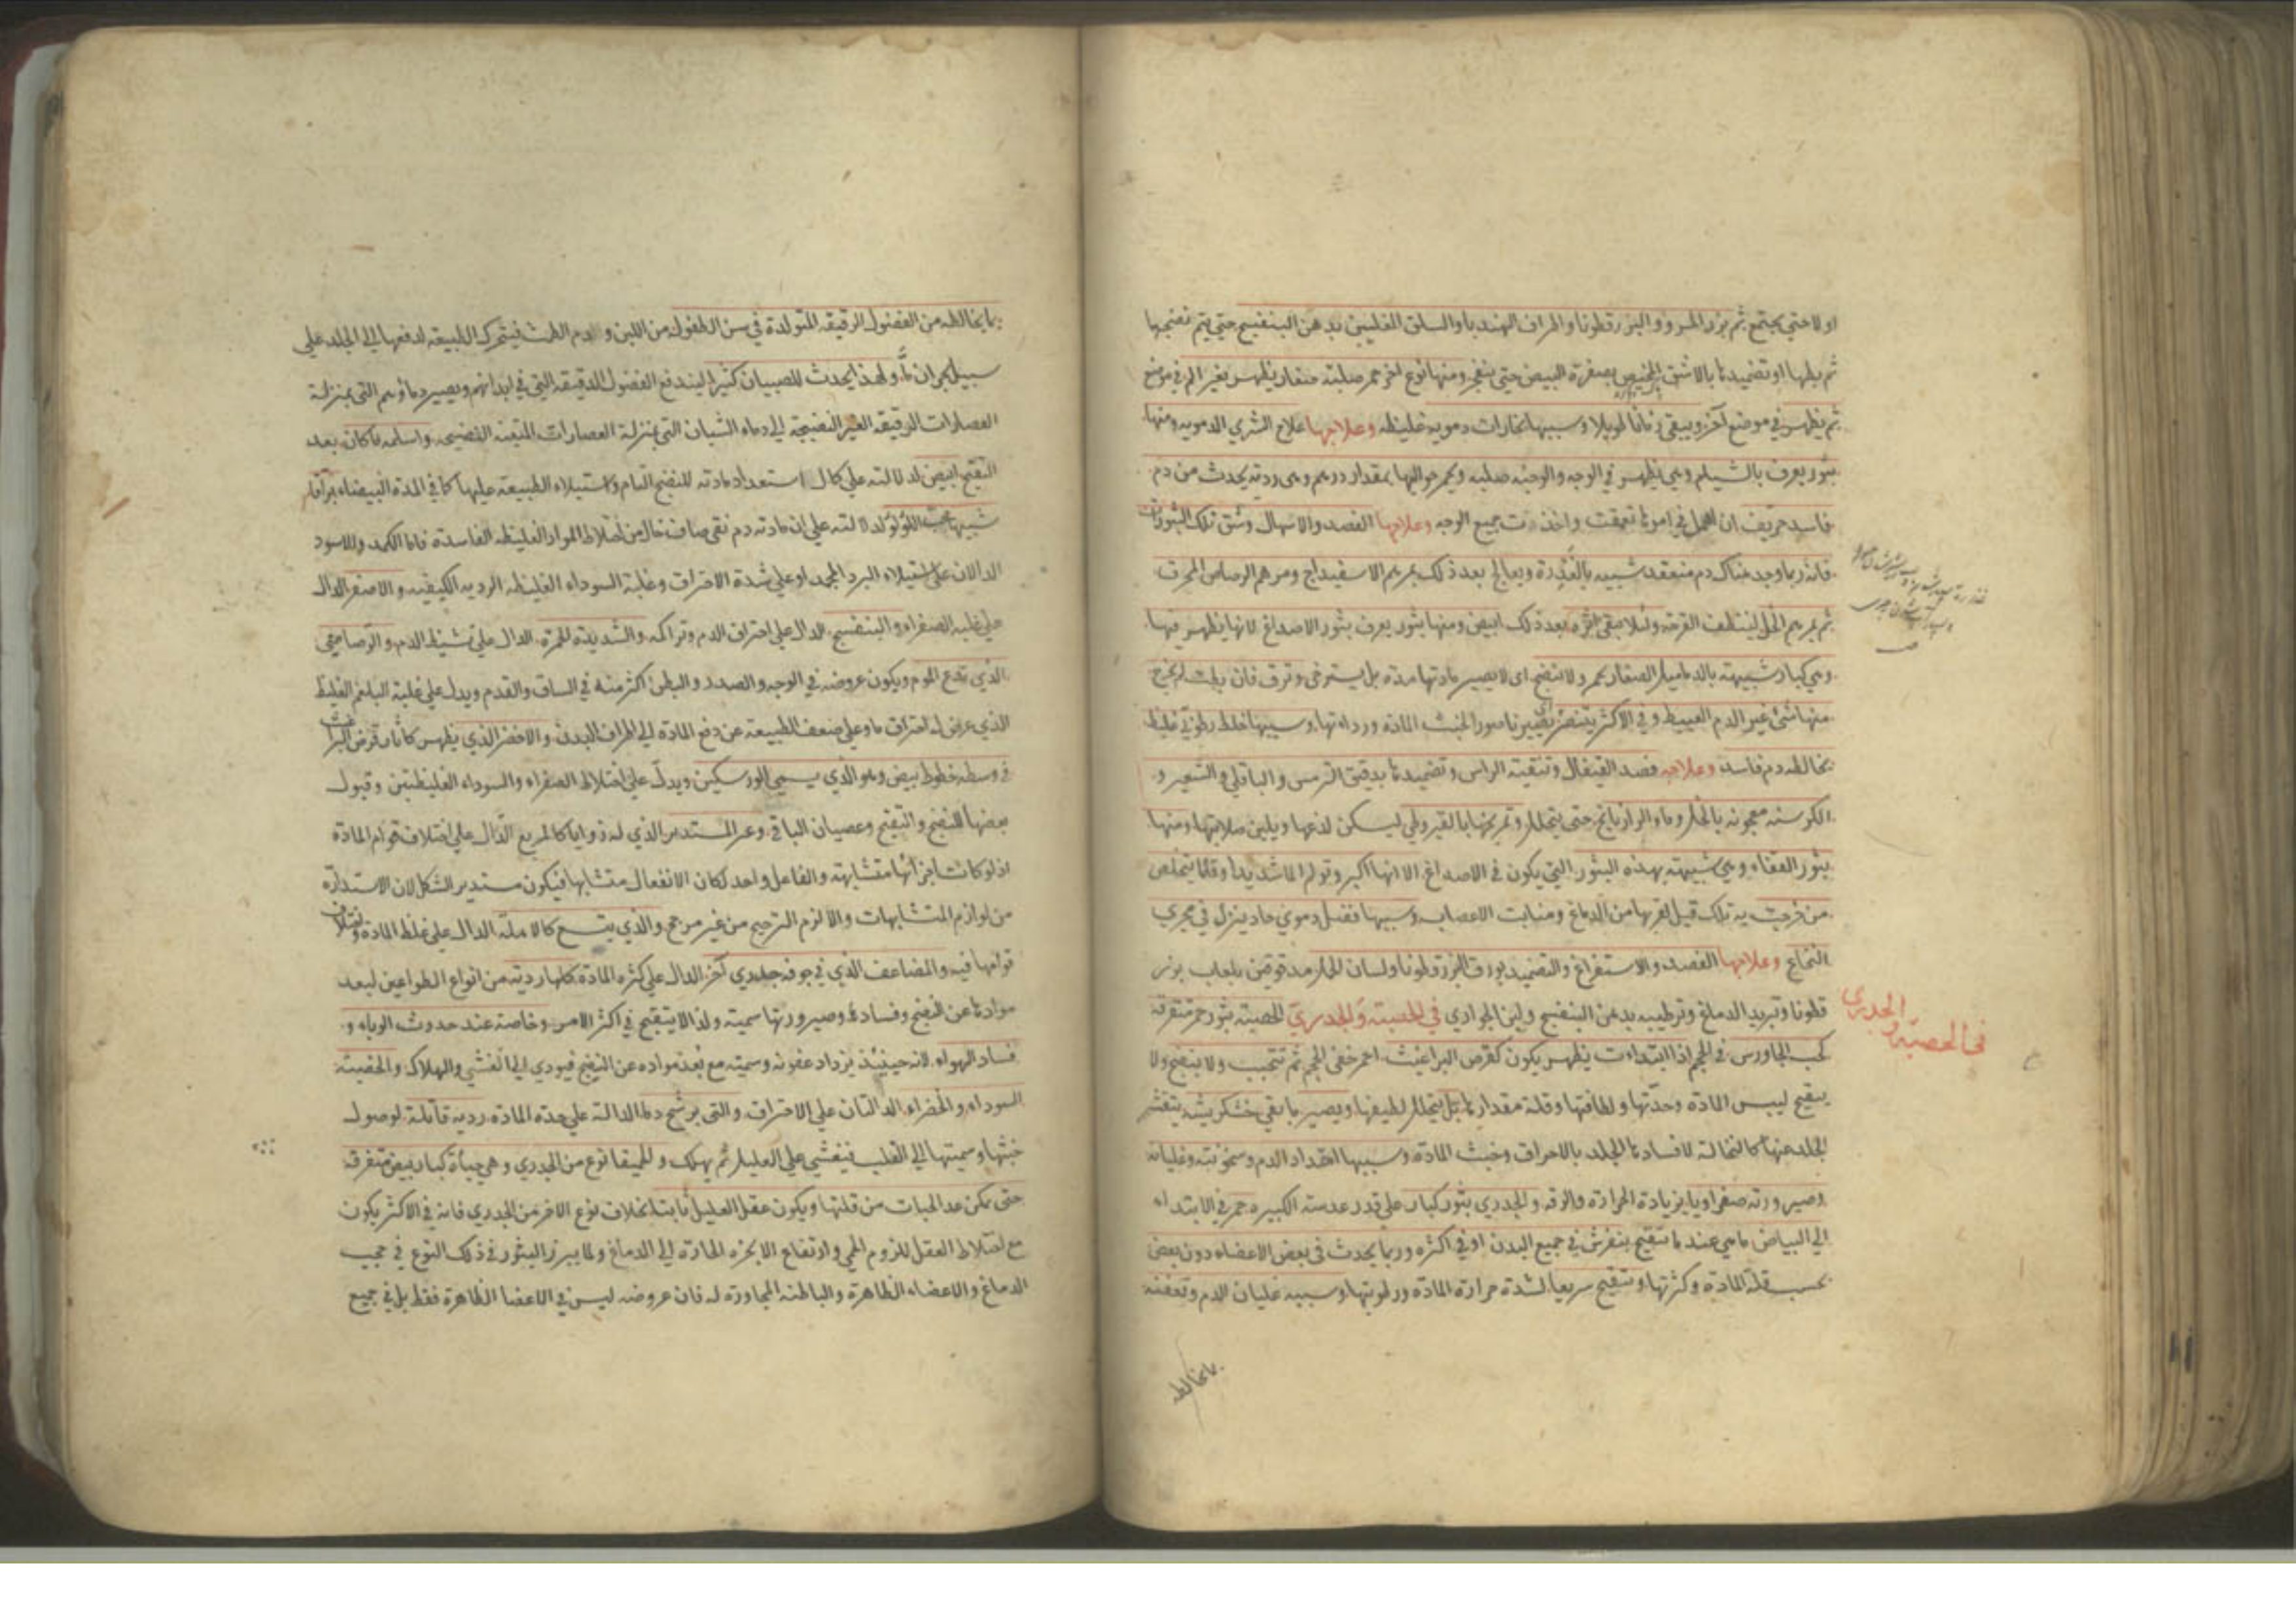 اولا حتى يجتمع ثم بزر المرو والبزر قطونا واطراف الهندبا والسلق المغليين بدهن البنفسج حتى يتم نضجها
ثم بطها او تضميدها بالاشق بصفرة البيض حتى ينفجر ومنها نوع اخر حمر صلبة صغار يظهر بغير الم في موضع
ثم يظهر في موضع آخر ويبقى زمانا طويلا وسببها بخارات دموية غليظه وعلاجها علاج الشري الدموية ومنها
بثور يعرف بالشيلم وهي يظهر في الوجه والوجنة صلبه ويحمر حواليها بمقدار درهم وهي رديه يحدث من دم
فاسد حريف ان اهمل في امرها تعمقت واخذت جميع الوجه وعلاجها الفصد والاسهال وشق تلك البثورات
فانه ربما وجد هناك دم منعقد شبيه بالغدرة ويعالج بعد ذلك بمرهم الاسفيداج ومرهم الرصاص المحرق
ثم بمرهم الخل لينظف القرحة ولئلا يبقى اثره بعد ذلك ابيض ومنها بثور يعرف بثور الاصداغ لانها يظهر فيها
وهي كبار شبيهة بالدماميل الصغار يحمر ولا ينضج اى لا يصير مادتها مدة بل يسترخى وترق فان بطت لم يخرج
منها شئ غير الدم العبيط وفي الاكثر يصير ناصور الخبث المادة ورداءتها وسببها خلط رطوبي غليظ
يخالطه دم فاسد وعلاجه فصد القيفال وتنقية الراس وتضميدها بدقيق الترمس والباقلي والشعير و
الكرسنه معجونه بالخل وماء الرازيانج حتى يتحلل وتمريخها بالقيروطي ليسكن لذعها ويلين صلابتها ومنها
بثور القفاء وهي شبيهة بهذه البثور التي يكون في الاصداغ الا انها اكبر وتولم الما شديدا وقلما يتخلص
من خرجت به تلك قيل لقربها من الدماغ ومنابت الاعصاب وسببها فضل دموي حاد ينزل في مجري
النخاع وعلاجها الفصد والاستفراغ والتضميد بورق البزرقطونا ولسان الحمل مدقوقين بلعاب بزر
قطونا وتبريد الدماغ وترطيبه بدهن البنفسج ولبن الجواري في الحصبة والجدري الحصبة بثور حمر متفرقة
كحب الجاورس في الحجم اذا ابتداءت يظهر يكون كقرص البراغيث احمر خفي الحجم ثم تتحبب ولا ينضج ولا
يتقيح ليبس المادة وحدتها ولطافتها وقلة مقدارها بل يتحلل لطيفها ويصير ما بقي خشكريشه يتقشر
الجلد عنها كالنخالة لافسادها الجلد بالاحراق وخبث المادة وسببها احتداد الدم وسخونته وغليانه
وصيرورته صفراويا بزيادة الحرارة والرقه والجدري بثور كبار على قدر عدسة الكبيرة حمر في الابتداء
الي البياض ماهي عند ما تتقيح ينفرش في جميع البدن او في اكثره وربما يحدث في بعض الاعضاء دون بعض
بحسب قلة المادة وكثرتها وتتقيح سريعا لشدة حرارة المادة ورطوبتها وسببه غليان الدم وتعفنه
بما يخالطه
في الحصبة والجدري
بما يخالطه من الفضول الرقيقه المتولدة في سن الطفوله من اللبن ودم الطمث فيتحرك الطبيعة لدفعها الي الجلد علي
سبيل بحران ما ولهذا يحدث للصبيان كثيرا ليندفع الفضول الرقيقه التي في ابدانهم ويصير دماؤهم التي بمنزلة
العصارات الرقيقه الغير النضيجة الي دماء الشبان التي بمنزلة العصارات المتينه النضيجه واسلمه ما كان بعد
التقيح ابيض لدلالته علي كمال استعداد مادته للنضج التام واستيلاء الطبيعة عليها كما في المدة البيضاء براقا
شبيها بحب اللؤلؤ لدلالته علي ان مادته دم نقي صاف خال من اختلاط المواد الغليظه الفاسدة فاما الكمد والاسود
الدالان على استيلاء البرد المجمد او علي شدة الاحتراق وغلبة السوداء الغليظه الرديه الكيفيه والاصفر الدال
علي غلبة الصفراء والبنفسجي الدال علي احتراق الدم وتراكمه والشديدة الحمرة الدال علي تشيط الدم والرصاصي
الذي يتبع الموم ويكون عروضه في الوجه والصدر والبطن اكثر منه في الساق والقدم ويدل علي غلبة البلغم الغليظ
الذي عرض له احتراق ما وعلي ضعف الطبيعة عن دفع المادة الي اطراف البدن والاخضر الذي يظهر كآثار قرص البراغيث
في وسطه خطوط بيض وهو الذي يسمي الورسكين ويدل علي اختلاط الصفراء والسوداء الغليظتين وقبول
بعضها للنضج والتقيح وعصيان الباقي وغير المستدير الذي له زوايا كالمربع الدال علي اختلاف قوام المادة
اذ لو كانت اجزائها متشابهة والفاعل واحد لكان الانفعال متشابها فيكون مستدير الشكل لان الاستدارة
من لوازم المتشابهات والا لزم الترجيح من غير مرجح والذي يتسع كالاملة الدال علي غلظ المادة واختلاف
قوامها فيه والمضاعف الذي في جوفه جدري آخر الدال علي كثرة المادة كلها ردية من انواع الطواعين لبعد
موادها عن النضج وفسادها وصيرورتها سمية ولذا لا يتقيح في اكثر الامر وخاصة عند حدوث الوباء و
فساد الهواء لانه حينئذ يزداد عفونه وسمية مع بعد مواده عن النضج فيودي الي الغشي والهلاك والحصبة
السوداء والخضراء الدالتان علي الاحتراق والتي يرشح دما الدالة علي حدة المادة رديه قاتلة لوصول
خبثها وسميتها الي القلب فيغشي علي العليل ثم يهلك والحميقا نوع من الجدري وهي حبات كبار بيض متفرقة
حتى يمكن عد الحبات من قلتها ويكون عقل العليل ثابتا بخلاف نوع الاخر من الجدري فانه في الاكثر يكون
مع اختلاط العقل للزوم الحمي وارتفاع الابخره الحارة الي الدماغ ولما يبرز البثور في ذلك النوع في حجب
الدماغ والاعضاء الظاهرة والباطنة المجاورة له فان عروضه ليس في الاعضا الظاهرة فقط بل في جميع